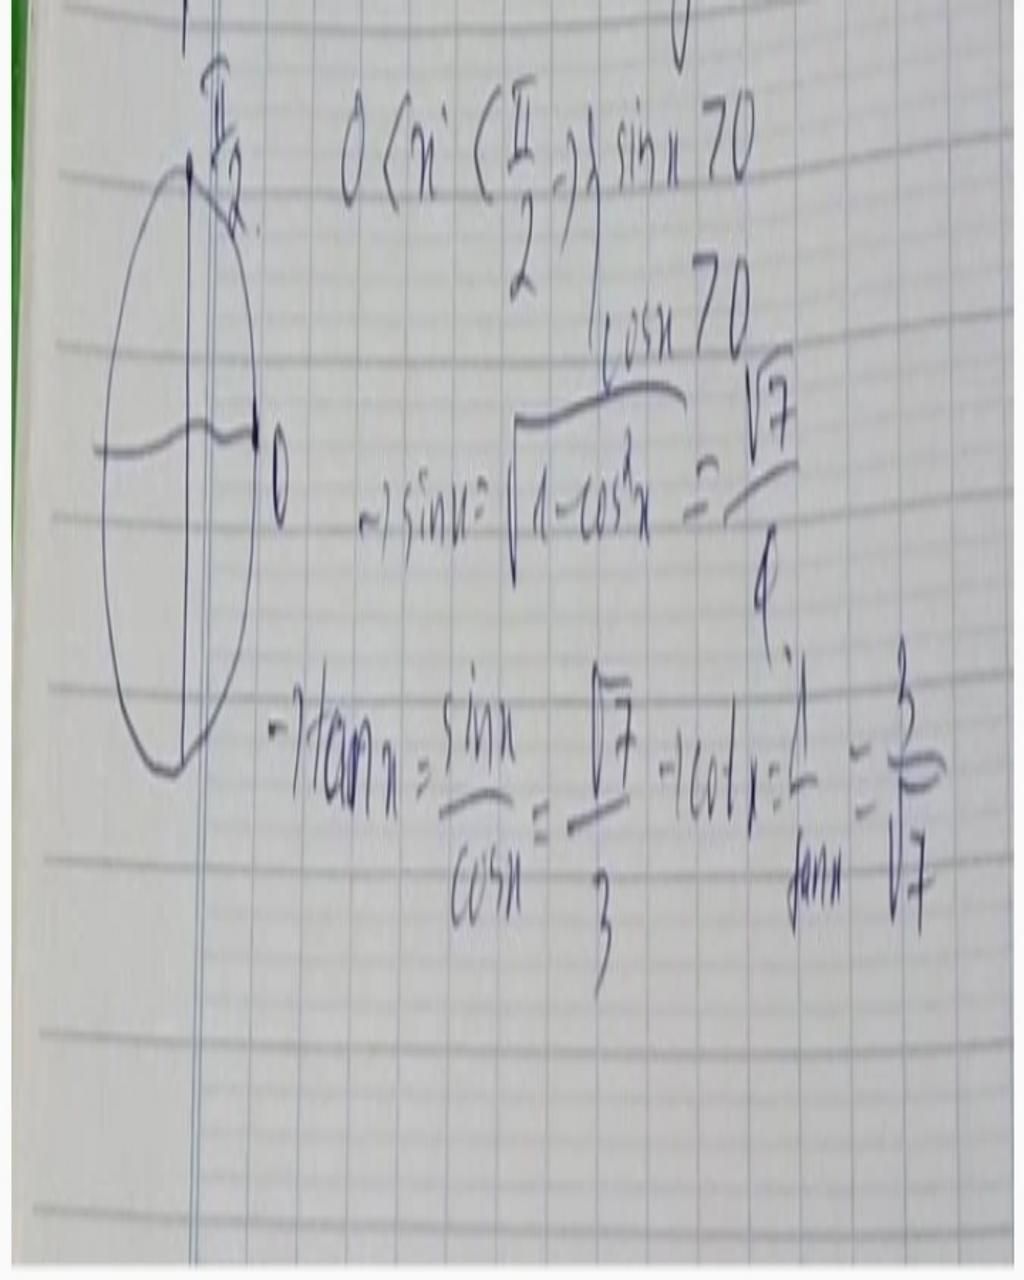 π/2
0 < x < π/2 → { sinx > 0
cosx > 0
0
→ sinx = √(1 - cos²x) = √7/4
→ tanx = sinx/cosx = √7/3 → cotx = 1/tanx = 3/√7